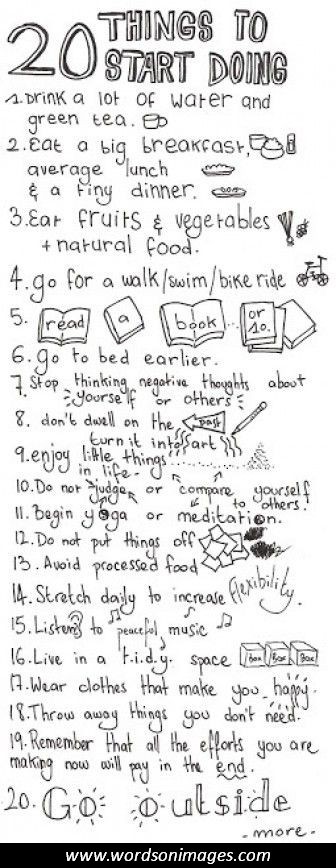 20 THINGS TO
START DOING
1. Drink a lot of water and
green tea.
2. Eat a big breakfast,
average lunch
& a tiny dinner.
3. Eat fruits & vegetables
+ natural food.
4. go for a walk/swim/bike ride
5. read a book... or 10.
6. go to bed earlier.
7. Stop thinking negative thoughts about
yourself or others
8. don't dwell on the past
turn it into art
9. enjoy little things
in life.
10. Do not judge or compare yourself
to others!
11. Begin yoga or meditation.
12. Do not put things off
13. Avoid processed food
14. Stretch daily to increase flexibility.
15. Listen to peaceful music
16. Live in a t.i.d.y. space Box Box Box
17. Wear clothes that make you happy.
18. Throw away things you don't need.
19. Remember that all the efforts you are
making now will pay in the end.
20. Go outside
- more -
www.wordsonimages.com